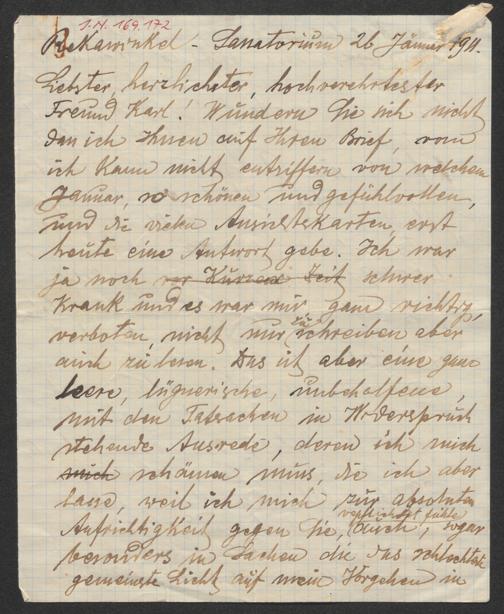 I.N. 169.172
Rekawinkel - Sanatorium 26 Jänner 1911.
Liebster, herzlichster, hochverehrtester
Freund Karl! Wundern Sie sich nicht
dass ich Ihnen auf Ihren Brief, vom
ich kann nicht entziffern von welchem
Januar, so schönen und gefühlvollen,
und die vielen Ansichtskarten, erst
heute eine Antwort gebe. Ich war
ja noch vor Kurzer Zeit schwer
krank und es war mir ganz richtig,
verboten, nicht nur zu schreiben aber
auch zu lesen. Das ist aber eine ganz
leere, lügnerische, unbeholfene,
mit den Tatsachen in Widerspruch
stehende Ausrede, deren ich mich
mich schämen muss, die ich aber
lasse, weil ich mich zur absoluten
Aufrichtigkeit gegen Sie, verpflichtet fühle auch, sogar
besonders in Sachen die das schlechteste
gemeinste Licht auf mein Vorgehen in